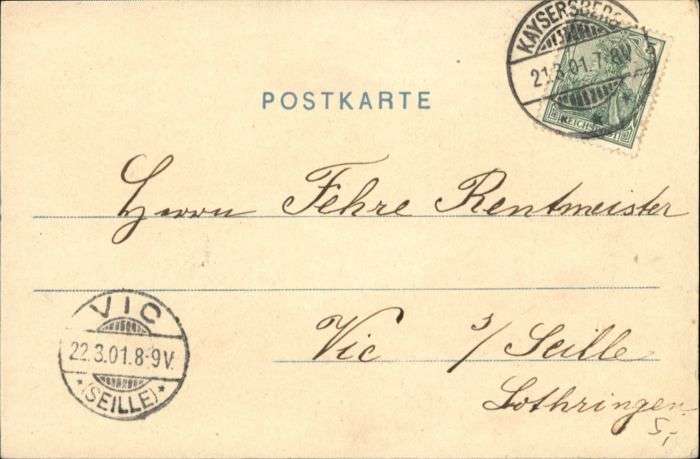 KAYSERSBERG
21.3.01.7-8V
REICHSPOST
POSTKARTE
Herrn Fehre Rentmeister
VIC
22.3.01.8-9V.
*(SEILLE)*
Vic s/Seille
Lothringen